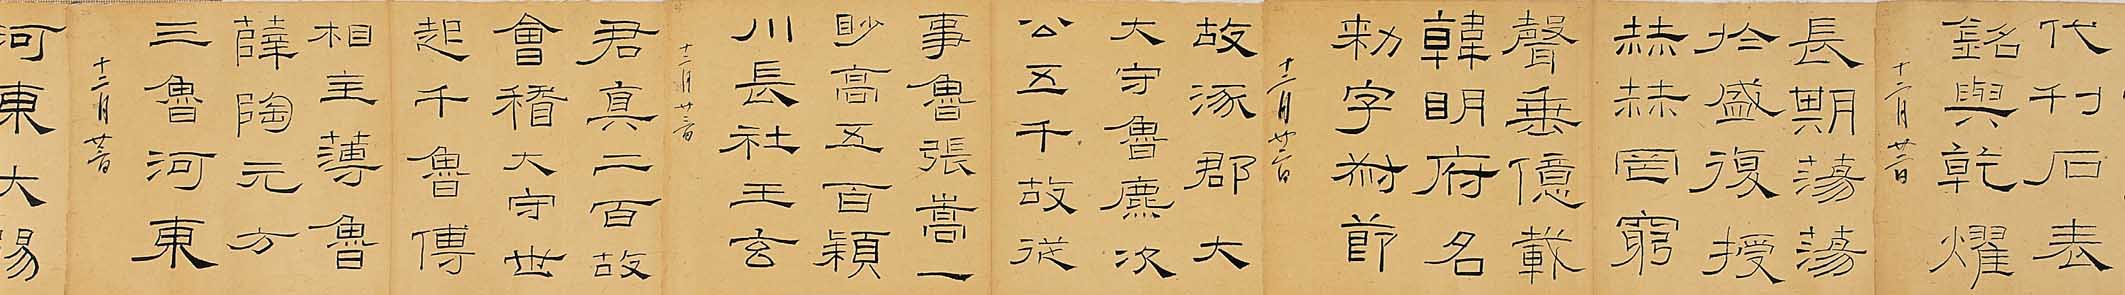 代刊石表
銘與乾燿
十二月廿二日
長期蕩蕩
於盛復授
赫赫罔窮
聲垂億載
韓明府名
勑字叔節
十二月廿二日
故涿郡大
大守魯麃次
公五千故從
事魯張嵩一
眇高五百潁
川長社王玄
十二月廿三日
君真二百故
會稽大守世
起千魯傅
相主薄魯
薛陶元方
三魯河東
十二月廿
河東大陽